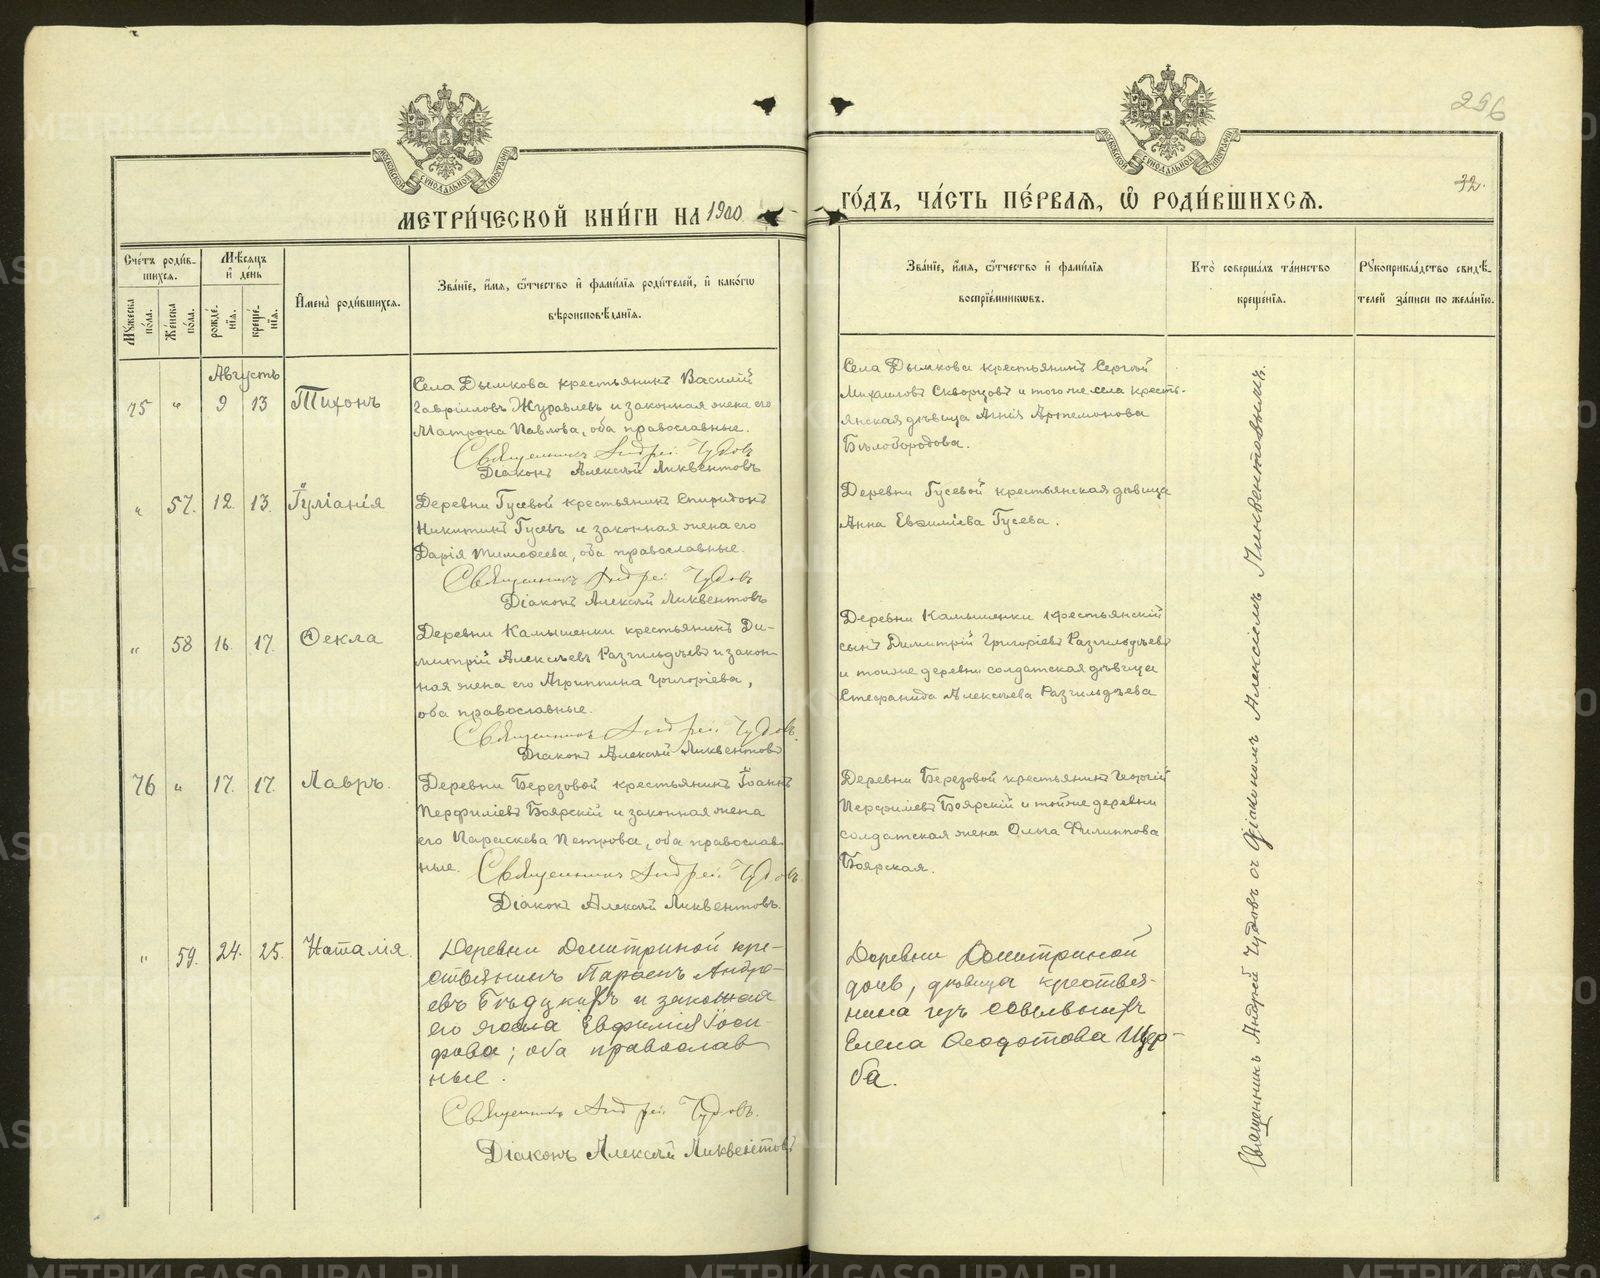 296
32.
МОСКОВСКОЙ СѴНОДАЛЬНОЙ ТИПОГРАФІИ
МОСКОВСКОЙ СѴНОДАЛЬНОЙ ТИПОГРАФІИ
МЕТРИ́ЧЕСКОЙ КНИ́ГИ НА 1900
ГО́ДЪ, ЧА́СТЬ ПЕ́РВАЯ, Ѽ РОДИ́ВШИХСЯ.
Сче́тъ роди́в-
шихся.
Мѣ́сяцъ
и҆ де́нь
Мꙋ́жеска по́ла.
Же́нска по́ла.
рожде́-
нїѧ.
креще́-
нїѧ.
И҆мена̀ роди́вшихся.
Зва́нїе, и҆́мя, ѻ҆́тчество и҆ фами́лїя роди́телей, и҆ како́гѡ
вѣроисповѣ́данїя.
Зва́нїе, и҆́мя, ѻ҆́тчество и҆ фами́лїя
воспрїе́мниковъ.
Кто̀ соверша́лъ та́инство
креще́нїя.
Рꙋкоприкла́дство свидѣ́-
телей за́писи по жела́нїю.
Августъ
75 " 9 13 Тихонъ
Села Дымкова крестьянинъ Василій
Гавріиловъ Журавлевъ и законная жена его
Матрона Павлова, оба православные.
Священникъ Андрей Чудовъ
Діаконъ Алексѣй Ликвентовъ
Села Дымкова крестьянинъ Сергѣй
Михаиловъ Скворцовъ и того же села кресть-
янская дѣвица Агнія Артемонова
Бѣлобородова.
" 57. 12. 13. Іуліанія
Деревни Гусевой крестьянинъ Спиридонъ
Никитинъ Гусевъ и законная жена его
Дарія Тимоѳеева, оба православные.
Священникъ Андрей Чудовъ
Діаконъ Алексѣй Ликвентовъ
Деревни Гусевой крестьянская дѣвица
Анна Евѳиміева Гусева.
" 58 16. 17. Ѳекла
Деревни Камышенки крестьянинъ Ди-
митрій Алексѣевъ Разгильдѣевъ и закон-
ная жена его Агриппина Григоріева,
оба православные.
Священникъ Андрей Чудовъ.
Діаконъ Алексѣй Ликвентовъ
Деревни Камышенки крестьянскій
сынъ Димитрій Григоріевъ Разгильдѣевъ
и той же деревни солдатская дѣвица
Стефанида Алексѣева Разгильдѣева
76 " 17. 17. Лавръ.
Деревни Березовой крестьянинъ Іоаннъ
Перфиліевъ Боярскій и законная жена
его Параскева Петрова, оба православ
ные. Священникъ Андрей Чудовъ.
Діаконъ Алексѣй Ликвентовъ.
Деревни Березовой крестьянинъ Георгій
Перфиліевъ Боярскій и той же деревни
солдатская жена Ольга Филиппова
Боярская.
" 59. 24. 25. Наталія.
Деревни Домитриной кре-
стьянинъ Парѳенъ Андре-
евъ и законная
его жена Евфимія Іоси-
фова; оба православ
ные.
Священникъ Андрей Чудовъ.
Діаконъ Алексѣй Ликвентовъ
Деревни Домитриной
дочь, дѣвица крестья-
нина изъ ссыльныхъ
Елена Ѳеодотова Щер-
ба.
Священникъ Андрей Чудовъ съ діакономъ Алексѣемъ Ликвентовымъ.
METRIKI.GASO-URAL.RU